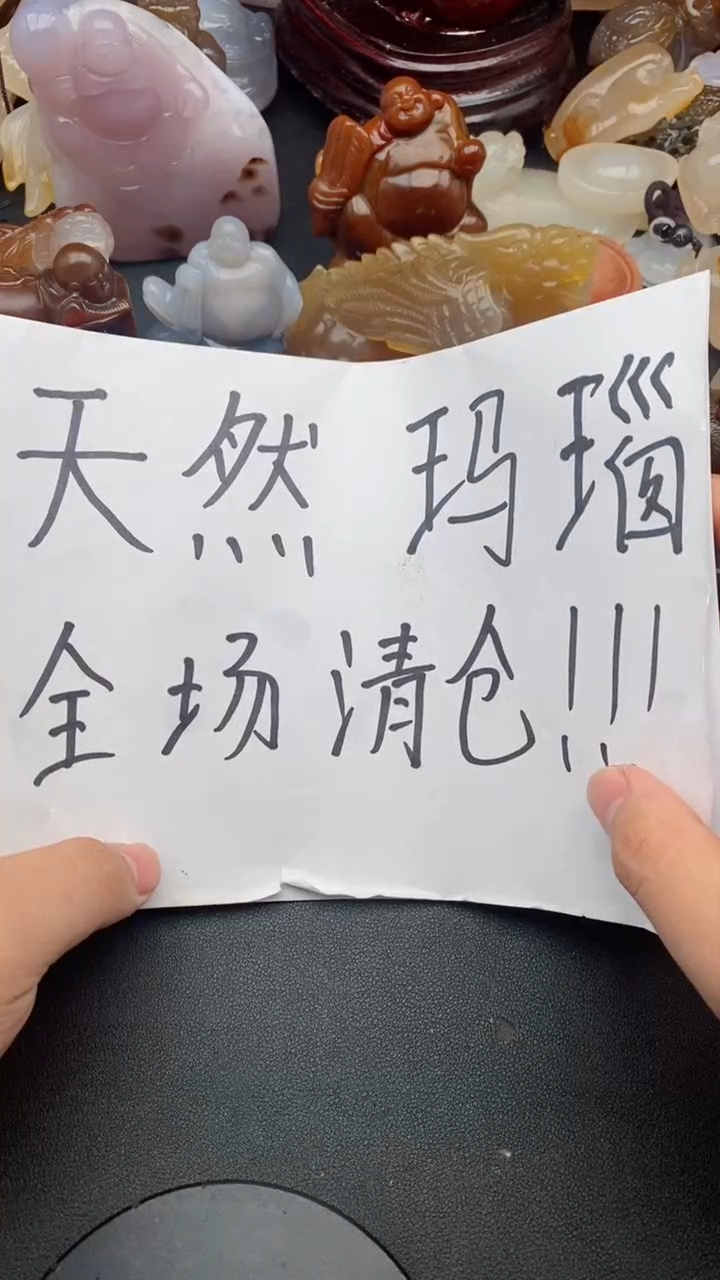 天然 玛瑙
全场清仓!!!